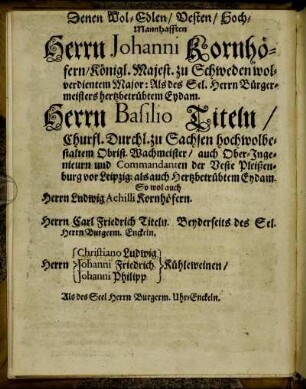 Denen Wol-Edlen/ Vesten/ Hoch-
Mannhafften
Herrn Johanni Kornhö-
fern/ Königl. Majest. zu Schweden wol-
verdientem Major: Als des Sel. Herrn Bürger-
meisters hertzbetrübtem Eydam.
Herrn Basilio Titeln/
Churfl. Durchl. zu Sachsen hochwolbe-
staltem Obrist. Wachmeister/ auch Ober-Inge-
nieurn und Commandanten der Veste Pleißen-
burg vor Leipzig: als auch Hertzbetrübtem Eydam.
So wol auch
Herrn Ludwig Achilli Kornhöfern.
Herrn Carl Friedrich Titeln. Beyderseits des Sel.
Herrn Burgerm. Enckeln.
Christiano Ludwig
Herrn Johanni Friedrich Kühleweinen/
Johanni Philipp
Als des Seel Herrn Burgerm. Uhr-Enckeln.